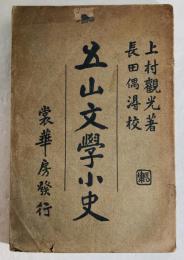 上村觀光著
長田偶得校
五山文學小史
裳華房發行